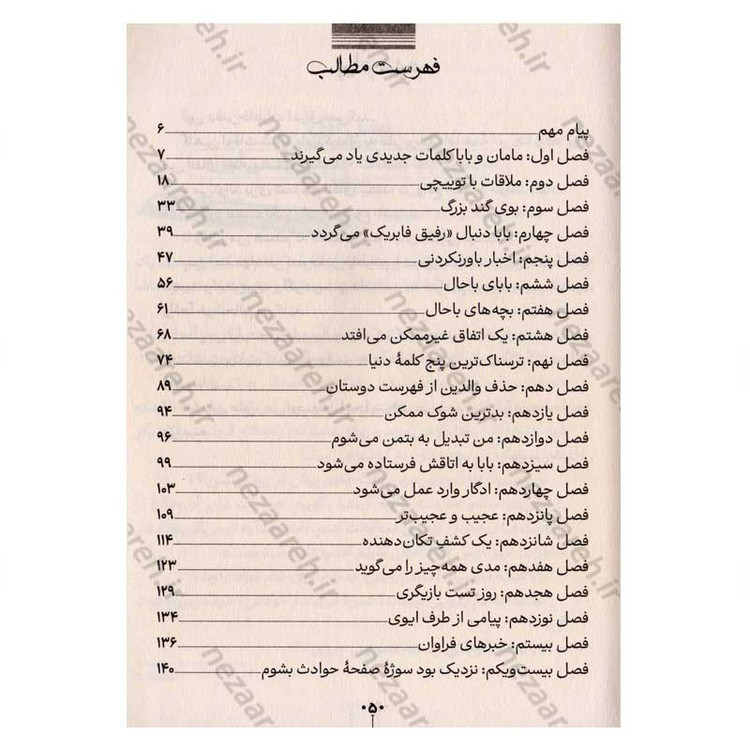 فهرست مطالب
پیام مهم ۶
فصل اول: مامان و بابا کلمات جدیدی یاد می‌گیرند ۷
فصل دوم: ملاقات با توییچی ۱۸
فصل سوم: بوی گند بزرگ ۳۳
فصل چهارم: بابا دنبال «رفیق فابریک» می‌گردد ۳۹
فصل پنجم: اخبار باورنکردنی ۴۷
فصل ششم: بابای باحال ۵۶
فصل هفتم: بچه‌های باحال ۶۱
فصل هشتم: یک اتفاق غیرممکن می‌افتد ۶۸
فصل نهم: ترسناک‌ترین پنج کلمهٔ دنیا ۷۴
فصل دهم: حذف والدین از فهرست دوستان ۸۹
فصل یازدهم: بدترین شوک ممکن ۹۴
فصل دوازدهم: من تبدیل به بتمن می‌شوم ۹۶
فصل سیزدهم: بابا به اتاقش فرستاده می‌شود ۹۹
فصل چهاردهم: ادگار وارد عمل می‌شود ۱۰۳
فصل پانزدهم: عجیب و عجیب‌تر ۱۰۹
فصل شانزدهم: یک کشفِ تکان‌دهنده ۱۱۴
فصل هفدهم: مدی همه‌چیز را می‌گوید ۱۲۳
فصل هجدهم: روز تست بازیگری ۱۲۹
فصل نوزدهم: پیامی از طرف ایوی ۱۳۴
فصل بیستم: خبرهای فراوان ۱۳۶
فصل بیست‌ویکم: نزدیک بود سوژهٔ صفحهٔ حوادث بشوم ۱۴۰
۵
nezaareh.ir